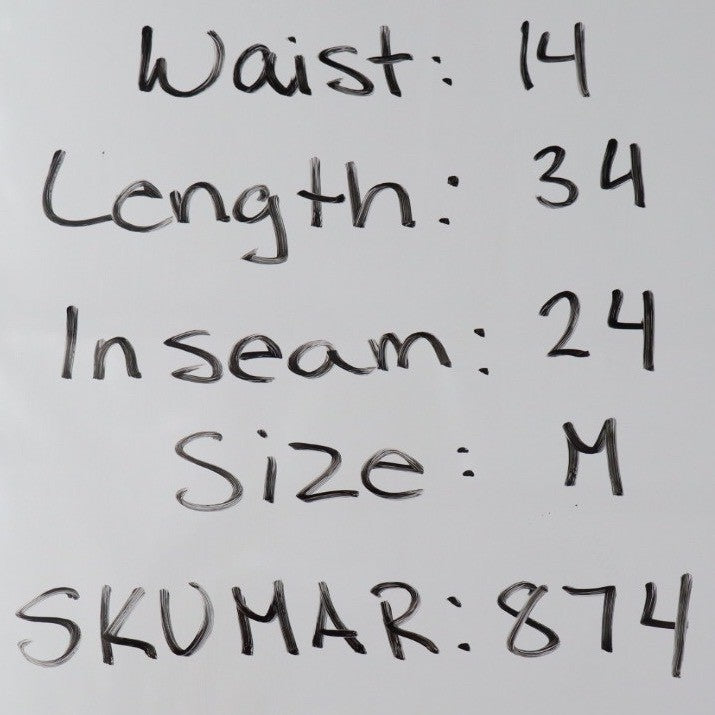 Waist: 14
Length: 34
Inseam: 24
Size: M
SKUMAR: 874